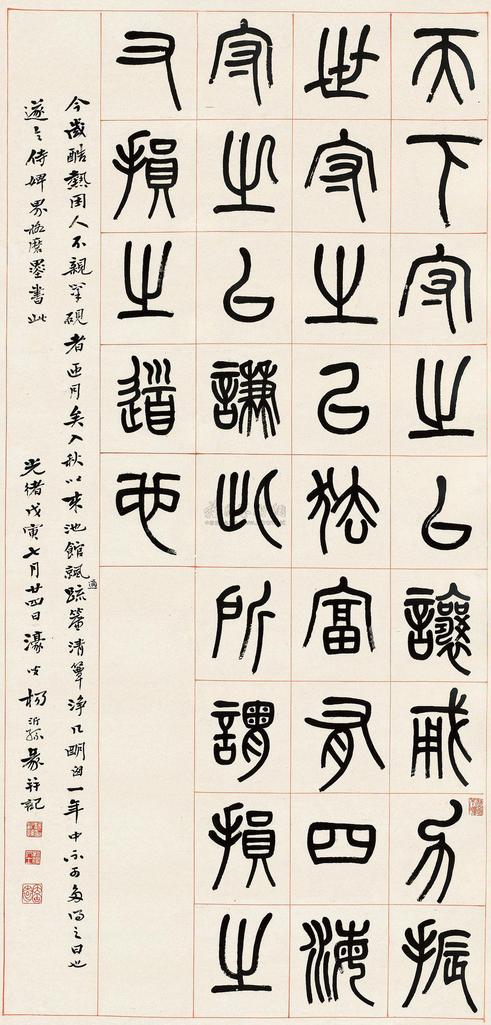 天下守之以讓勇力振
世守之以㹤富有四海
守之以謙此所謂損之
又損之道也
今歲酷熱困人不親筆硯者匝月矣入秋以來池館颯適疏簾清簟淨几明窗一年中不可多得之日也
遂令侍婢界紙磨墨書此 光緒戊寅七月廿四日濠叟楊沂孫篆并記